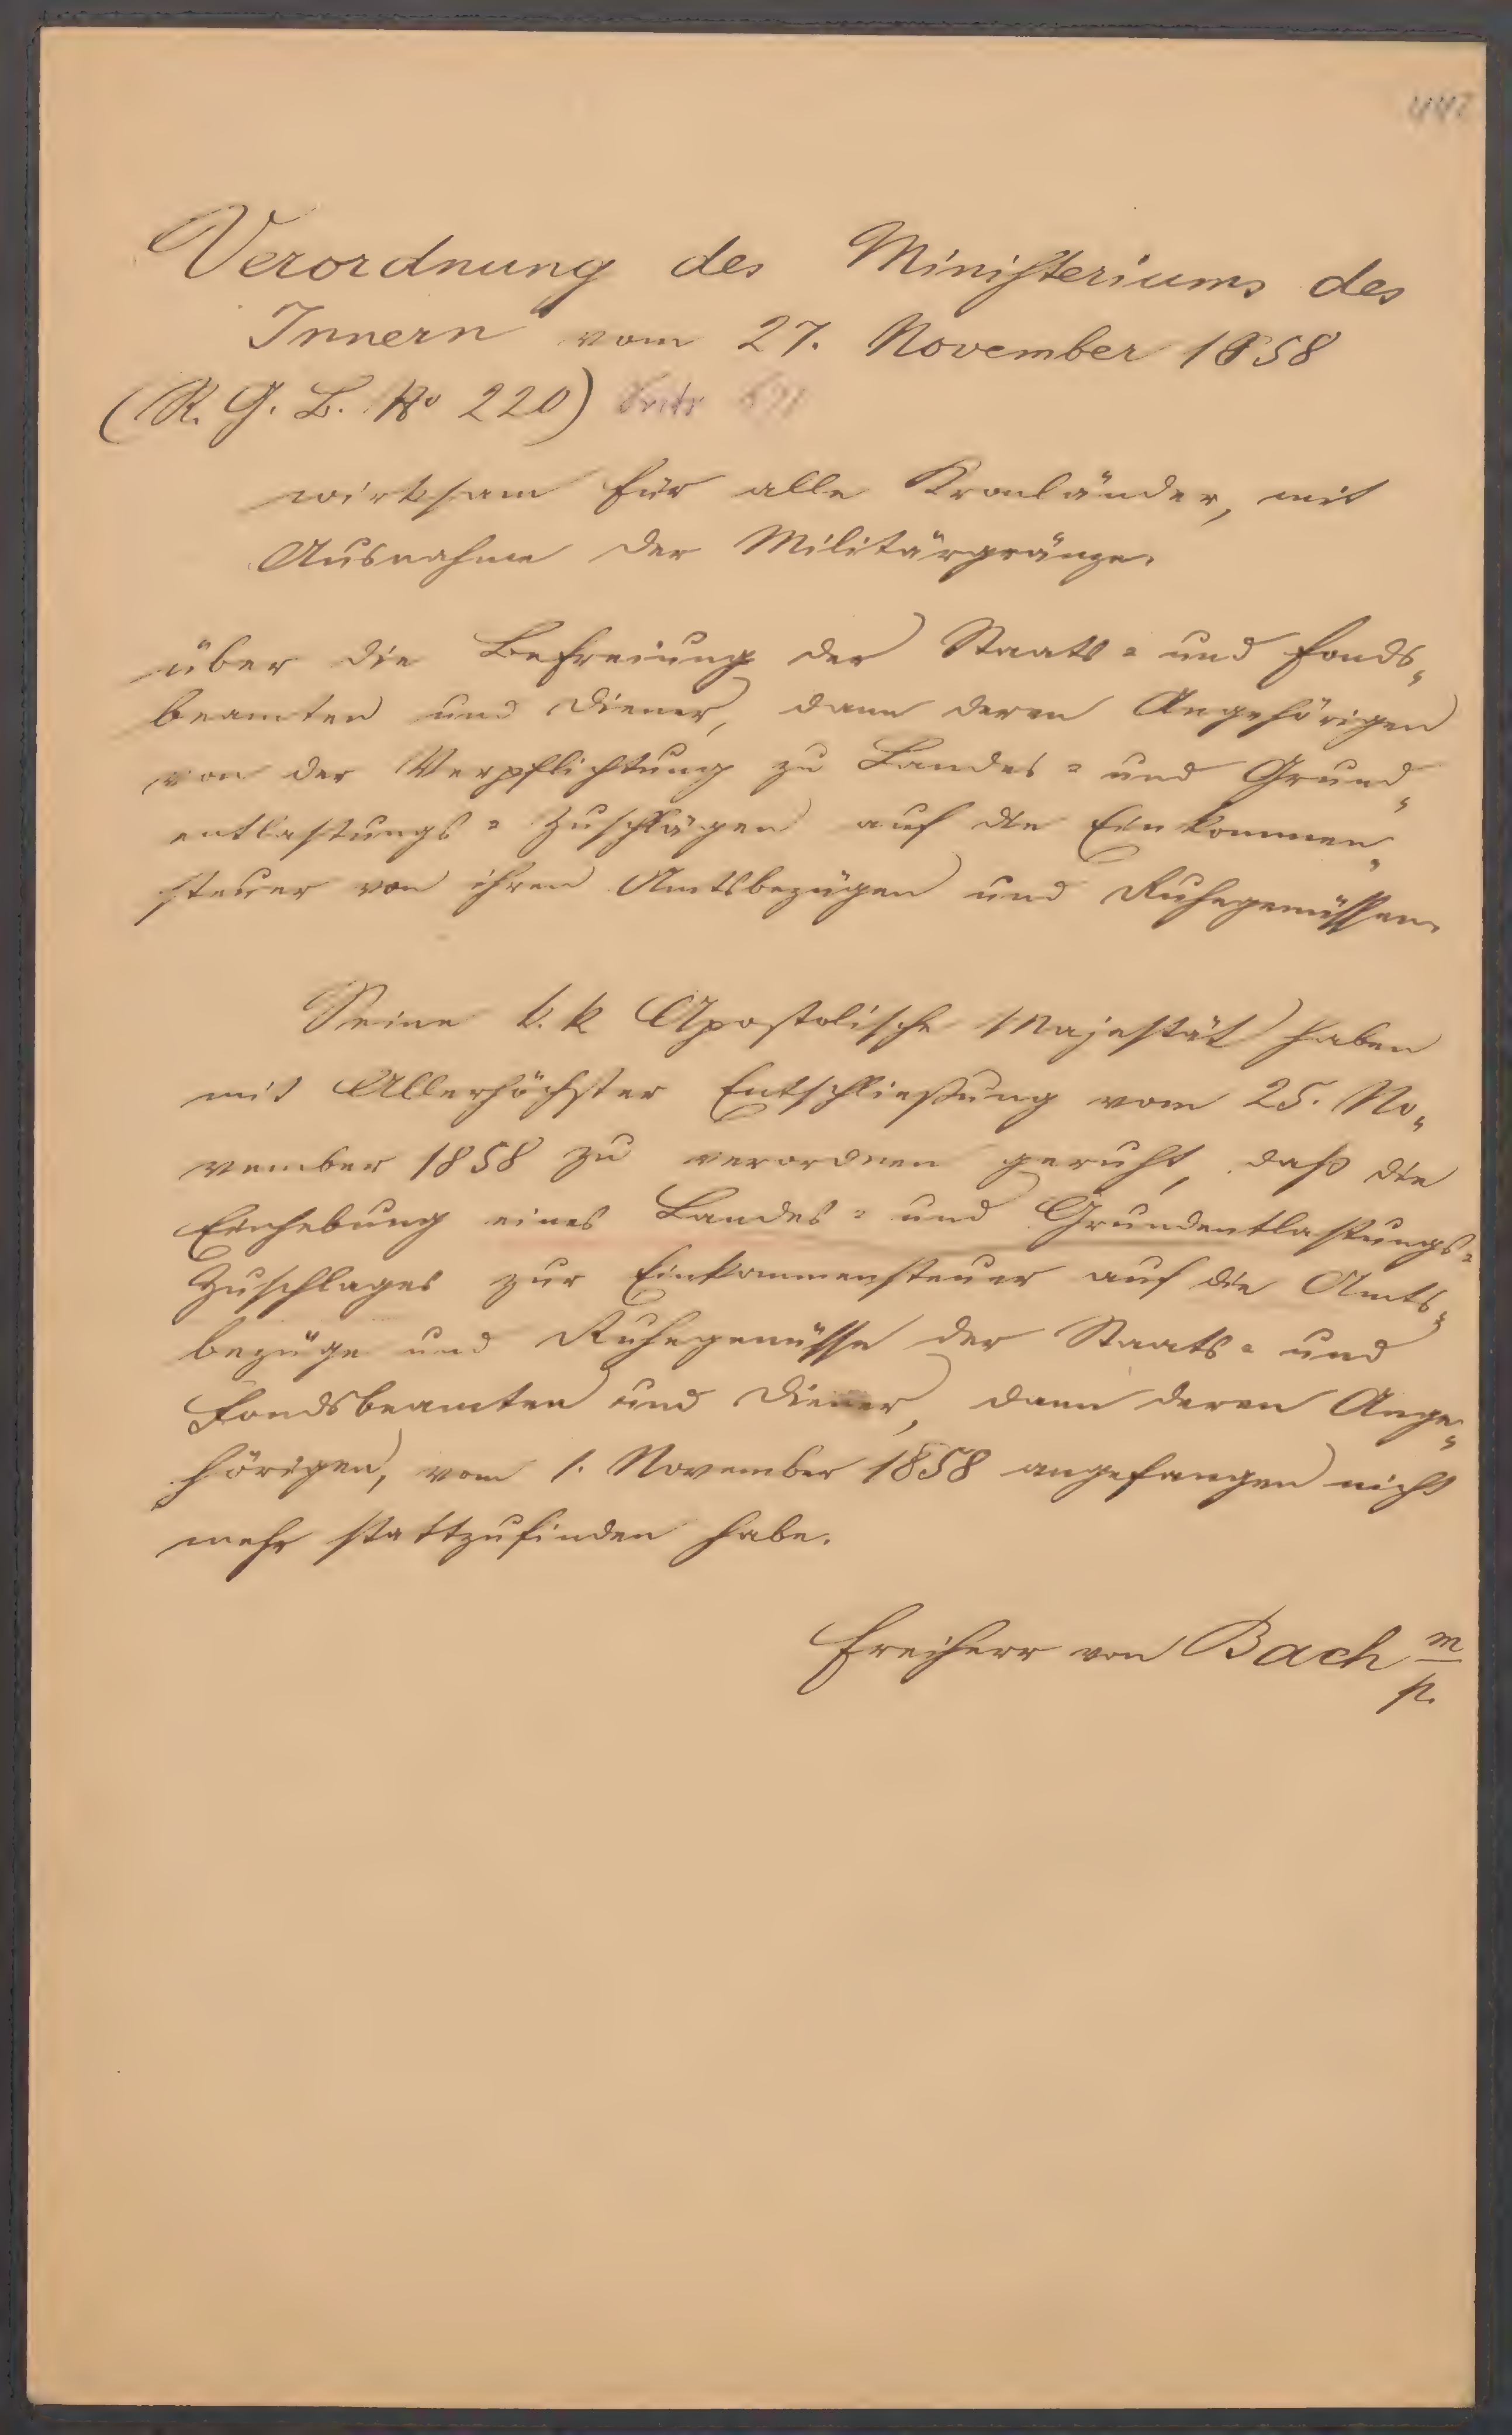 Verordnung des Ministeriums des
Innern vom 27. November 1858
(R. G. B. No 220) Seite
wirksam für alle Kronländer, mit
Ausnahme der Militärgränze.
über die Befreiung der Staats= und Fonds„
beamten und Diener, dann deren Angehörigen
von der Verpflichtung zu Landes= und Grund„
entlastungs=Zuschlägen auf die Einkommen„
steuer von ihren Amtsbezügen und Ruhegenüssen.
Seine k. k Apostolische Majestät haben
mit Allerhöchster Entschließung vom 25. No„
vember 1858 zu verordnen geruht, daß die
Einhebung eines Landes= und Grundentlastungs=
Zuschlages zur Einkommensteuer auf die Amts„
bezüge und Ruhegenüsse der Staats= und
Fondsbeamten und Diener, dann deren Ange„
hörigen, vom 1. November 1858 angefangen nicht
mehr stattzufinden habe.
Freiherr von Bach m/p.